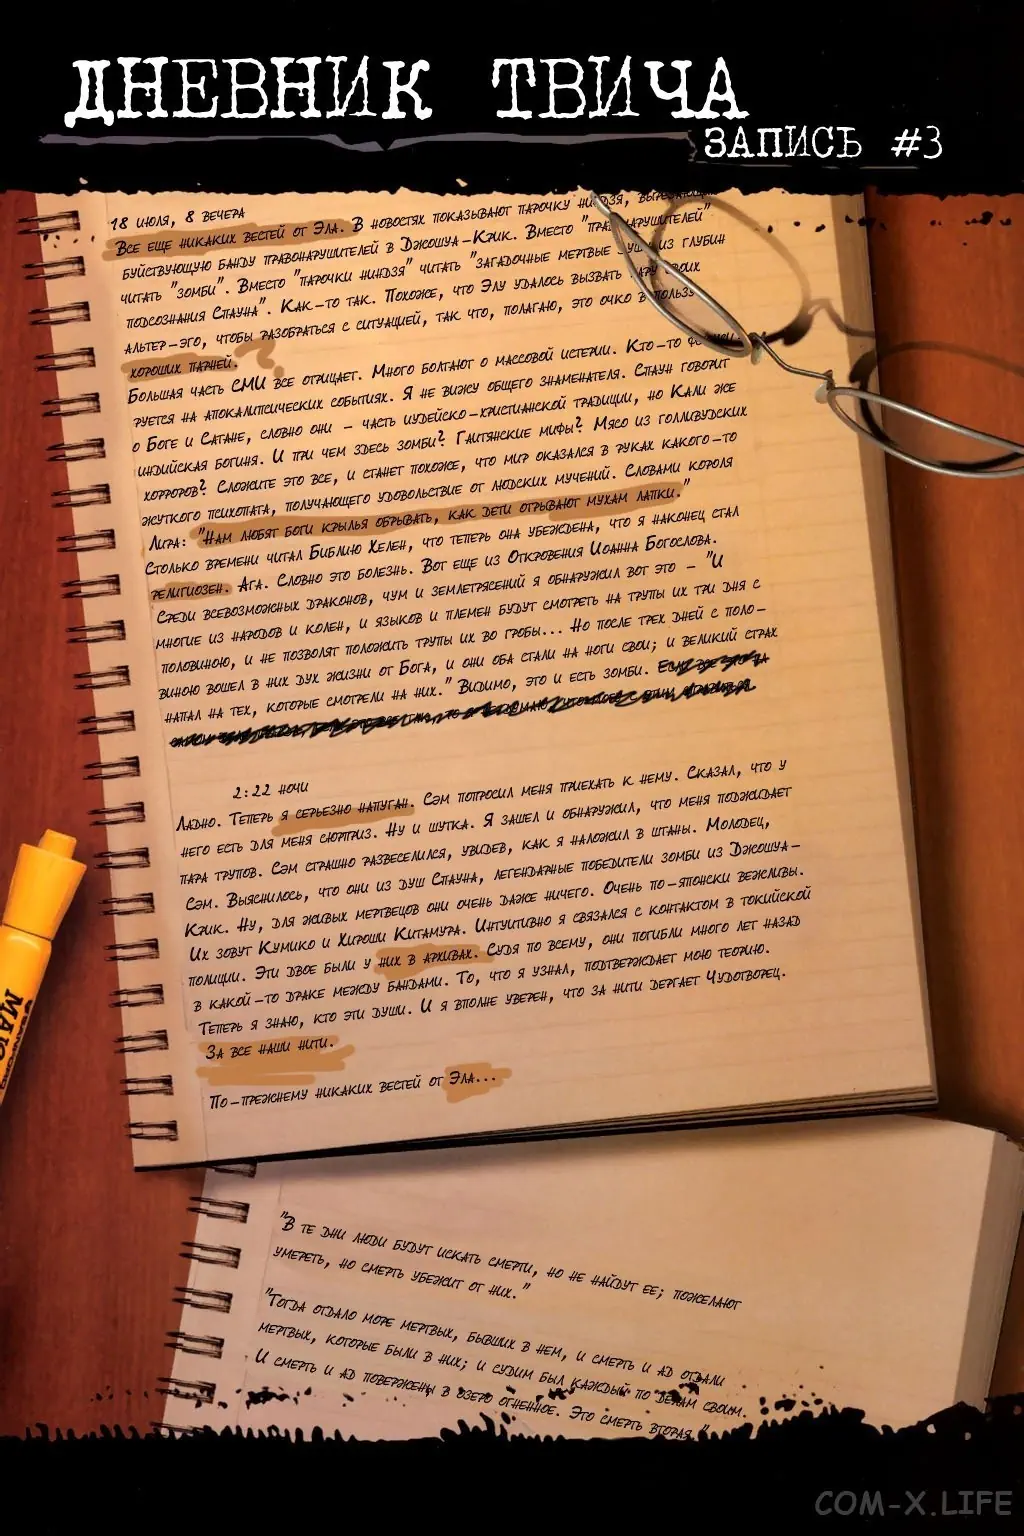 ДНЕВНИК ТВИЧА
ЗАПИСЬ #3
18 ИЮЛЯ, 8 ВЕЧЕРА
ВСЕ ЕЩЕ НИКАКИХ ВЕСТЕЙ ОТ ЭЛА. В НОВОСТЯХ ПОКАЗЫВАЮТ ПАРОЧКУ НИНДЗЯ,
БУЙСТВУЮЩУЮ БАНДУ ПРАВОНАРУШИТЕЛЕЙ В ДЖОШУА-КРИК. ВМЕСТО "ПРАВОНАРУШИТЕЛЕЙ"
ЧИТАТЬ "ЗОМБИ". ВМЕСТО "ПАРОЧКИ НИНДЗЯ" ЧИТАТЬ "ЗАГАДОЧНЫЕ МЕРТВЫЕ ДУШИ ИЗ ГЛУБИН
ПОДСОЗНАНИЯ СПАУНА". КАК-ТО ТАК. ПОХОЖЕ, ЧТО ЭЛУ УДАЛОСЬ ВЫЗВАТЬ ПАРУ СВОИХ
АЛЬТЕР-ЭГО, ЧТОБЫ РАЗОБРАТЬСЯ С СИТУАЦИЕЙ, ТАК ЧТО, ПОЛАГАЮ, ЭТО ОЧКО В ПОЛЬЗУ
ХОРОШИХ ПАРНЕЙ.
БОЛЬШАЯ ЧАСТЬ СМИ ВСЕ ОТРИЦАЕТ. МНОГО БОЛТАЮТ О МАССОВОЙ ИСТЕРИИ. КТО-ТО
РУЕТСЯ НА АПОКАЛИПСИЧЕСКИХ СОБЫТИЯХ. Я НЕ ВИЖУ ОБЩЕГО ЗНАМЕНАТЕЛЯ. СПАУН ГОВОРИТ
О БОГЕ И САТАНЕ, СЛОВНО ОНИ - ЧАСТЬ ИУДЕЙСКО-ХРИСТИАНСКОЙ ТРАДИЦИИ, НО КАЛИ ЖЕ
ИНДИЙСКАЯ БОГИНЯ. И ПРИ ЧЕМ ЗДЕСЬ ЗОМБИ? ГАИТЯНСКИЕ МИФЫ? МЯСО ИЗ ГОЛЛИВУДСКИХ
ХОРРОРОВ? СЛОЖИТЕ ЭТО ВСЕ, И СТАНЕТ ПОХОЖЕ, ЧТО МИР ОКАЗАЛСЯ В РУКАХ КАКОГО-ТО
ЖУТКОГО ПСИХОПАТА, ПОЛУЧАЮЩЕГО УДОВОЛЬСТВИЕ ОТ ЛЮДСКИХ МУЧЕНИЙ. СЛОВАМИ КОРОЛЯ
ЛИРА: "НАМ ЛЮБЯТ БОГИ КРЫЛЬЯ ОБРЫВАТЬ, КАК ДЕТИ ОТРЫВАЮТ МУХАМ ЛАПКИ."
СТОЛЬКО ВРЕМЕНИ ЧИТАЛ БИБЛИЮ ХЕЛЕН, ЧТО ТЕПЕРЬ ОНА УБЕЖДЕНА, ЧТО Я НАКОНЕЦ СТАЛ
РЕЛИГИОЗЕН. АГА. СЛОВНО ЭТО БОЛЕЗНЬ. ВОТ ЕЩЕ ИЗ ОТКРОВЕНИЯ ИОАННА БОГОСЛОВА.
СРЕДИ ВСЕВОЗМОЖНЫХ ДРАКОНОВ, ЧУМ И ЗЕМЛЕТРЯСЕНИЙ Я ОБНАРУЖИЛ ВОТ ЭТО - "И
МНОГИЕ ИЗ НАРОДОВ И КОЛЕН, И ЯЗЫКОВ И ПЛЕМЕН БУДУТ СМОТРЕТЬ НА ТРУПЫ ИХ ТРИ ДНЯ С
ПОЛОВИНОЮ, И НЕ ПОЗВОЛЯТ ПОЛОЖИТЬ ТРУПЫ ИХ ВО ГРОБЫ... НО ПОСЛЕ ТРЕХ ДНЕЙ С ПОЛО-
ВИНОЮ ВОШЕЛ В НИХ ДУХ ЖИЗНИ ОТ БОГА, И ОНИ ОБА СТАЛИ НА НОГИ СВОИ; И ВЕЛИКИЙ СТРАХ
НАПАЛ НА ТЕХ, КОТОРЫЕ СМОТРЕЛИ НА НИХ." ВИДИМО, ЭТО И ЕСТЬ ЗОМБИ.
2:22 НОЧИ
ЛАДНО. ТЕПЕРЬ Я СЕРЬЕЗНО НАПУГАН. СЭМ ПОПРОСИЛ МЕНЯ ПРИЕХАТЬ К НЕМУ. СКАЗАЛ, ЧТО У
НЕГО ЕСТЬ ДЛЯ МЕНЯ СЮРПРИЗ. НУ И ШУТКА. Я ЗАШЕЛ И ОБНАРУЖИЛ, ЧТО МЕНЯ ПОДЖИДАЕТ
ПАРА ТРУПОВ. СЭМ СТРАШНО РАЗВЕСЕЛИЛСЯ, УВИДЕВ, КАК Я НАЛОЖИЛ В ШТАНЫ. МОЛОДЕЦ,
СЭМ. ВЫЯСНИЛОСЬ, ЧТО ОНИ ИЗ ДУШ СПАУНА, ЛЕГЕНДАРНЫЕ ПОБЕДИТЕЛИ ЗОМБИ ИЗ ДЖОШУА-
КРИК. НУ, ДЛЯ ЖИВЫХ МЕРТВЕЦОВ ОНИ ОЧЕНЬ ДАЖЕ НИЧЕГО. ОЧЕНЬ ПО-ЯПОНСКИ ВЕЖЛИВЫ.
ИХ ЗОВУТ КУМИКО И ХИРОШИ КИТАМУРА. ИНТУИТИВНО Я СВЯЗАЛСЯ С КОНТАКТОМ В ТОКИЙСКОЙ
ПОЛИЦИИ. ЭТИ ДВОЕ БЫЛИ У НИХ В АРХИВАХ. СУДЯ ПО ВСЕМУ, ОНИ ПОГИБЛИ МНОГО ЛЕТ НАЗАД
В КАКОЙ-ТО ДРАКЕ МЕЖДУ БАНДАМИ. ТО, ЧТО Я УЗНАЛ, ПОДТВЕРЖДАЕТ МОЮ ТЕОРИЮ.
ТЕПЕРЬ Я ЗНАЮ, КТО ЭТИ ДУШИ. И Я ВПОЛНЕ УВЕРЕН, ЧТО ЗА НИТИ ДЕРГАЕТ ЧУДОТВОРЕЦ.
ЗА ВСЕ НАШИ НИТИ.
ПО-ПРЕЖНЕМУ НИКАКИХ ВЕСТЕЙ ОТ ЭЛА...
"В ТЕ ДНИ ЛЮДИ БУДУТ ИСКАТЬ СМЕРТИ, НО НЕ НАЙДУТ ЕЕ; ПОЖЕЛАЮТ
УМЕРЕТЬ, НО СМЕРТЬ УБЕЖИТ ОТ НИХ."
"ТОГДА ОТДАЛО МОРЕ МЕРТВЫХ, БЫВШИХ В НЕМ, И СМЕРТЬ И АД ОТДАЛИ
МЕРТВЫХ, КОТОРЫЕ БЫЛИ В НИХ; И СУДИМ БЫЛ КАЖДЫЙ ПО ДЕЛАМ СВОИМ.
И СМЕРТЬ И АД ПОВЕРЖЕНЫ В ОЗЕРО ОГНЕННОЕ. ЭТО СМЕРТЬ ВТОРАЯ."
COM-X.LIFE